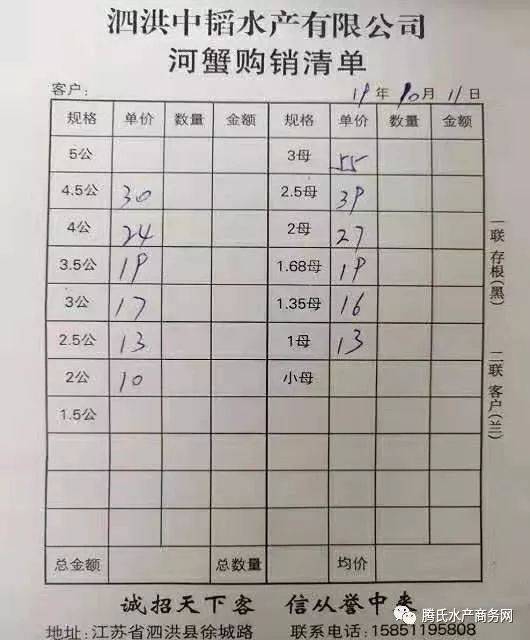 泗洪中韬水产有限公司
河蟹购销清单
客户: 19年10月11日
规格 单价 数量 金额 规格 单价 数量 金额
5公 3母 55
4.5公 30 2.5母 39
4公 24 2母 27
3.5公 19 1.68母 19
3公 17 1.35母 16
2.5公 13 1母 13
2公 10 小母
1.5公
总金额 总数量 均价
一联 存根(黑) 二联 客户(兰)
诚招天下客 信从誉中来
腾氏水产商务网
地址:江苏省泗洪县徐城路 联系电话:15851195808